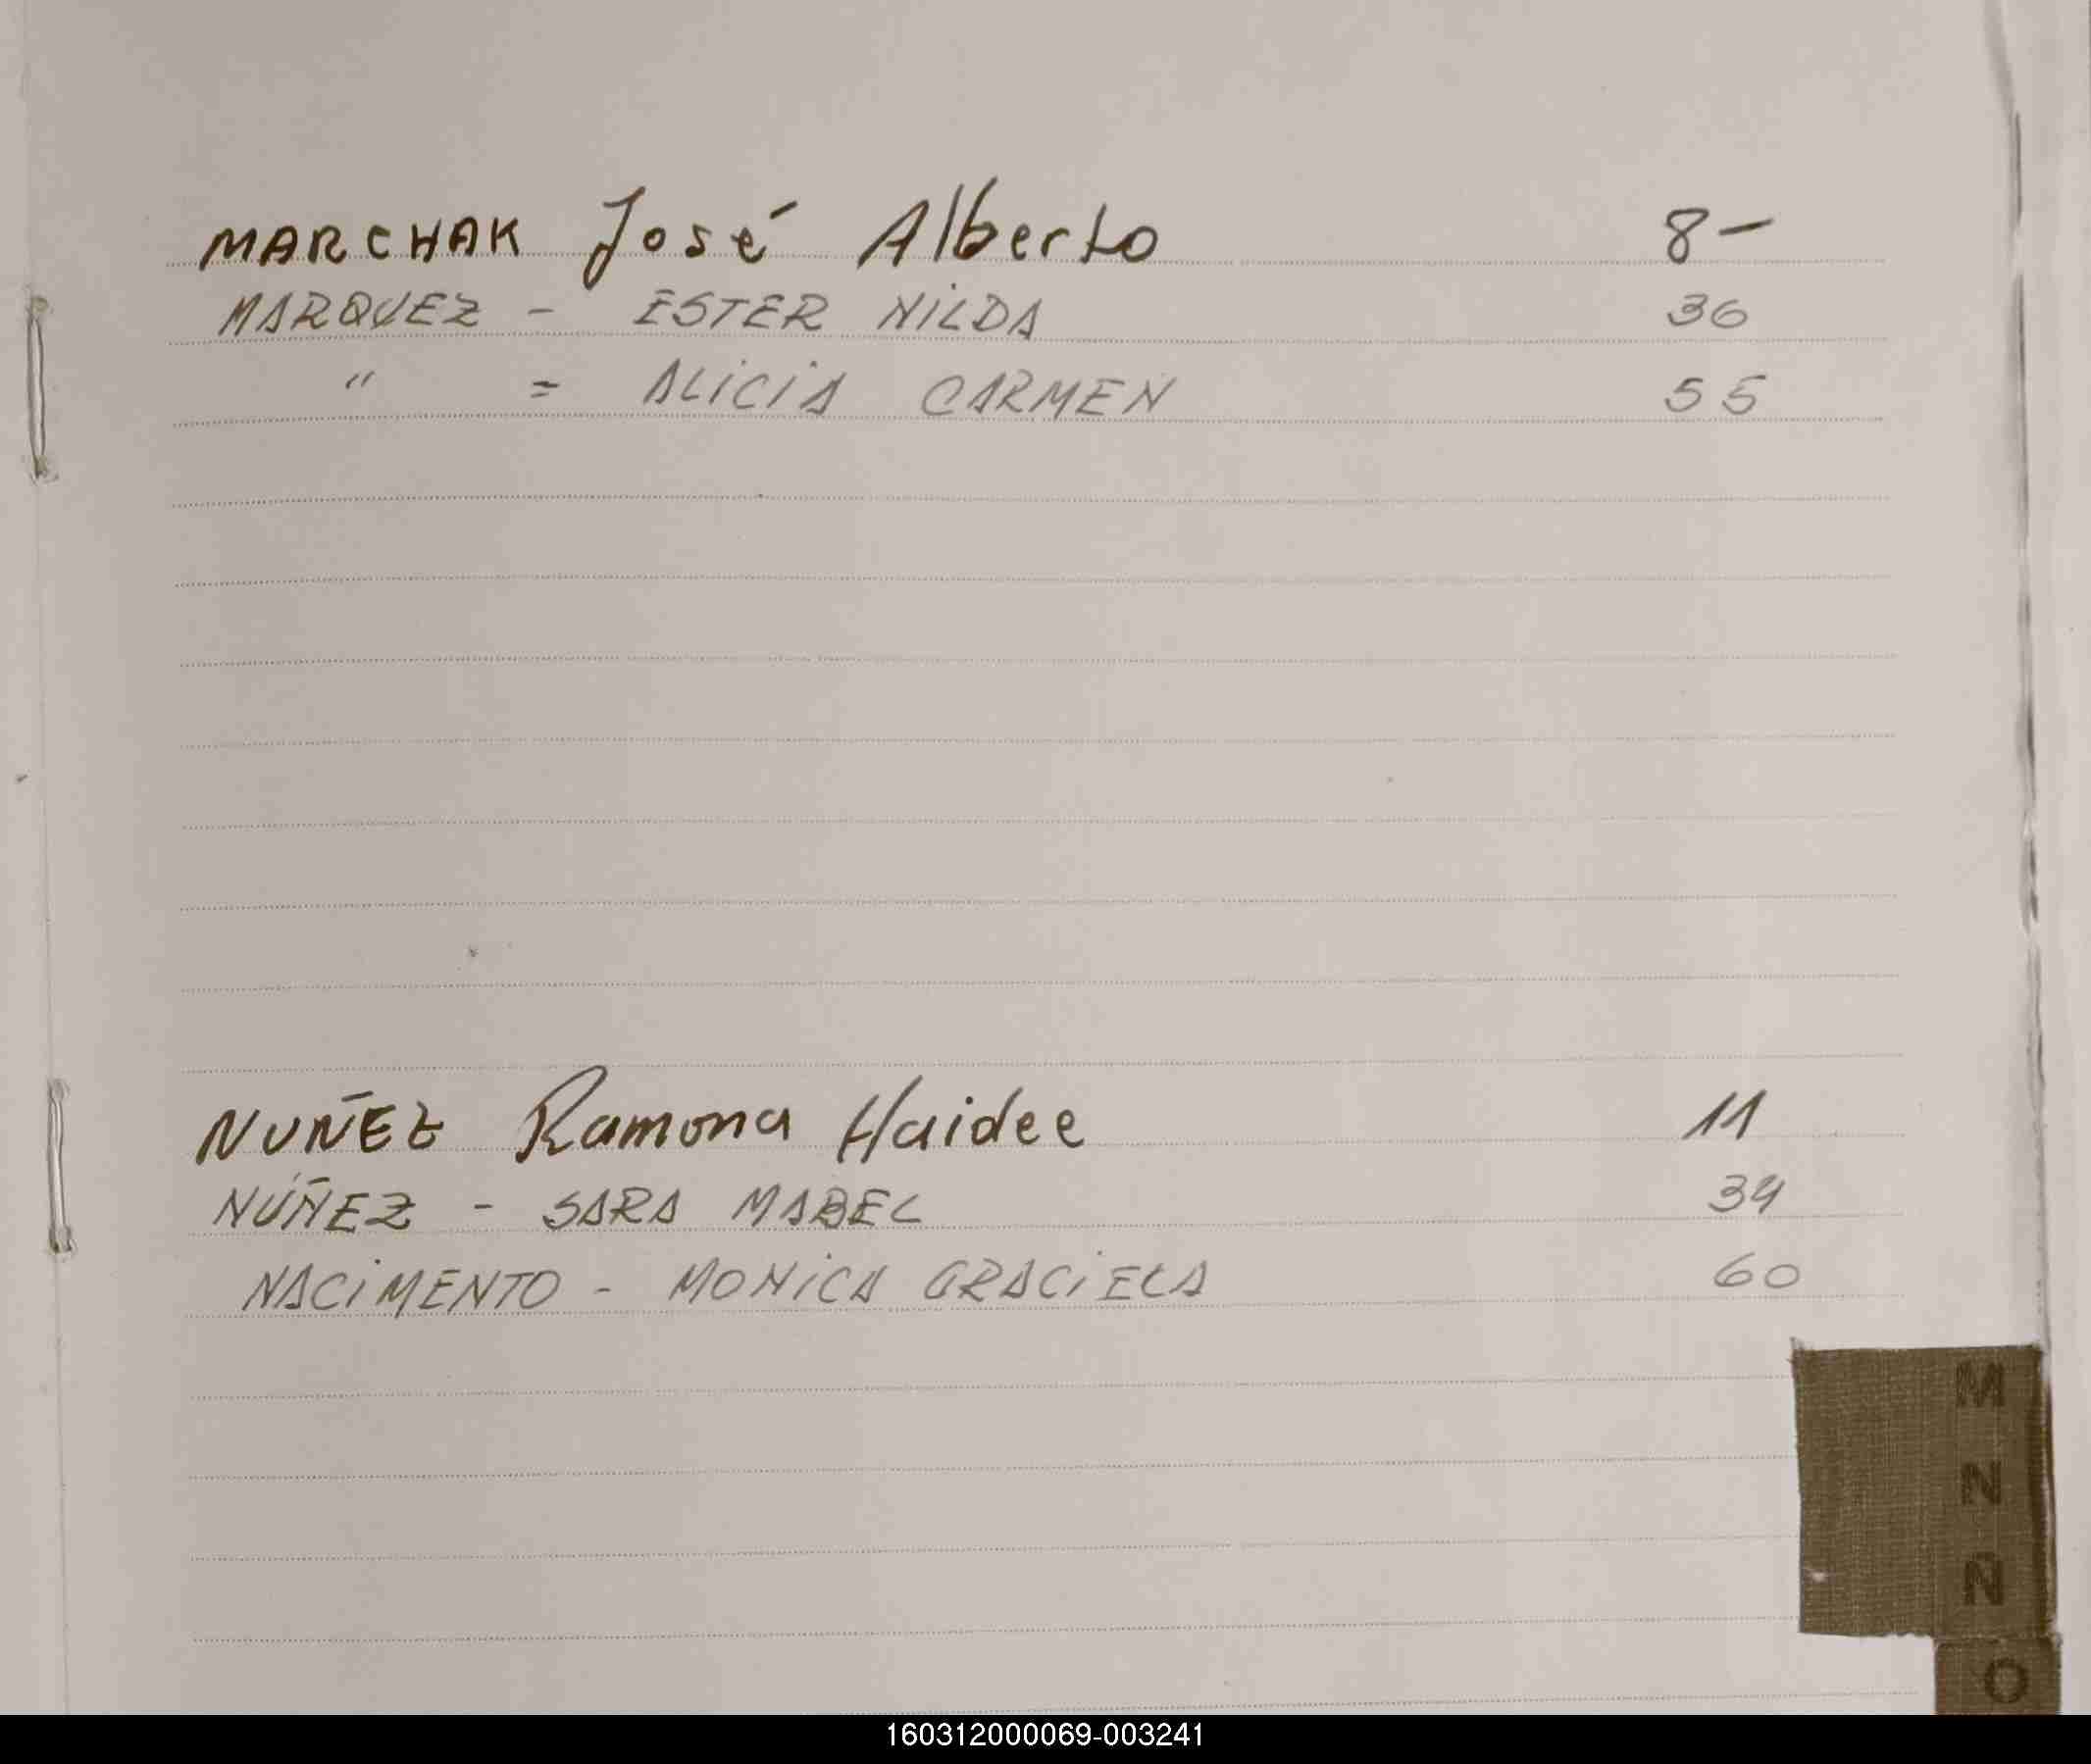 MARCHAK José Alberto 8-
MARQUEZ - ESTER NILDA 36
" = ALICIA CARMEN 55
NUÑEZ Ramona Haidee 11
NÚÑEZ - SARA MABEL 34
NACIMENTO - MONICA GRACIELA 60
M
N
Ñ
O
160312000069-003241